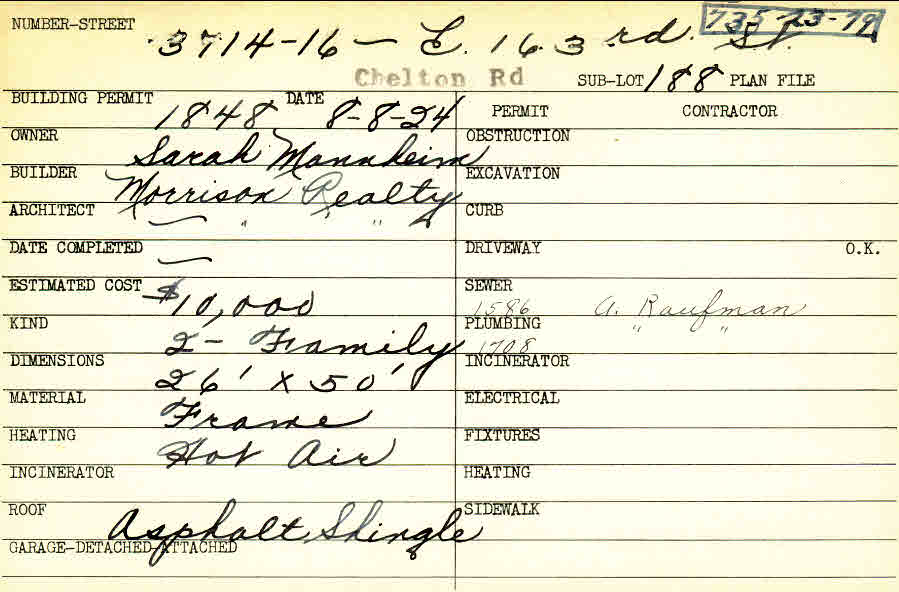 NUMBER-STREET 3714-16 — E. 163rd. St. 735-23-79
Chelton Rd SUB-LOT 188 PLAN FILE
BUILDING PERMIT 1848 DATE 8-8-24 PERMIT CONTRACTOR
OWNER Sarah Mannheim OBSTRUCTION
BUILDER Morrison Realty EXCAVATION
ARCHITECT — " " " CURB
DATE COMPLETED — DRIVEWAY O.K.
ESTIMATED COST $10,000 SEWER 1586 A. Kaufman
KIND 2- Family PLUMBING 1708 " "
DIMENSIONS 26' X 50' INCINERATOR
MATERIAL Frame ELECTRICAL
HEATING Hot Air FIXTURES
INCINERATOR HEATING
ROOF Asphalt Shingle SIDEWALK
GARAGE-DETACHED-ATTACHED